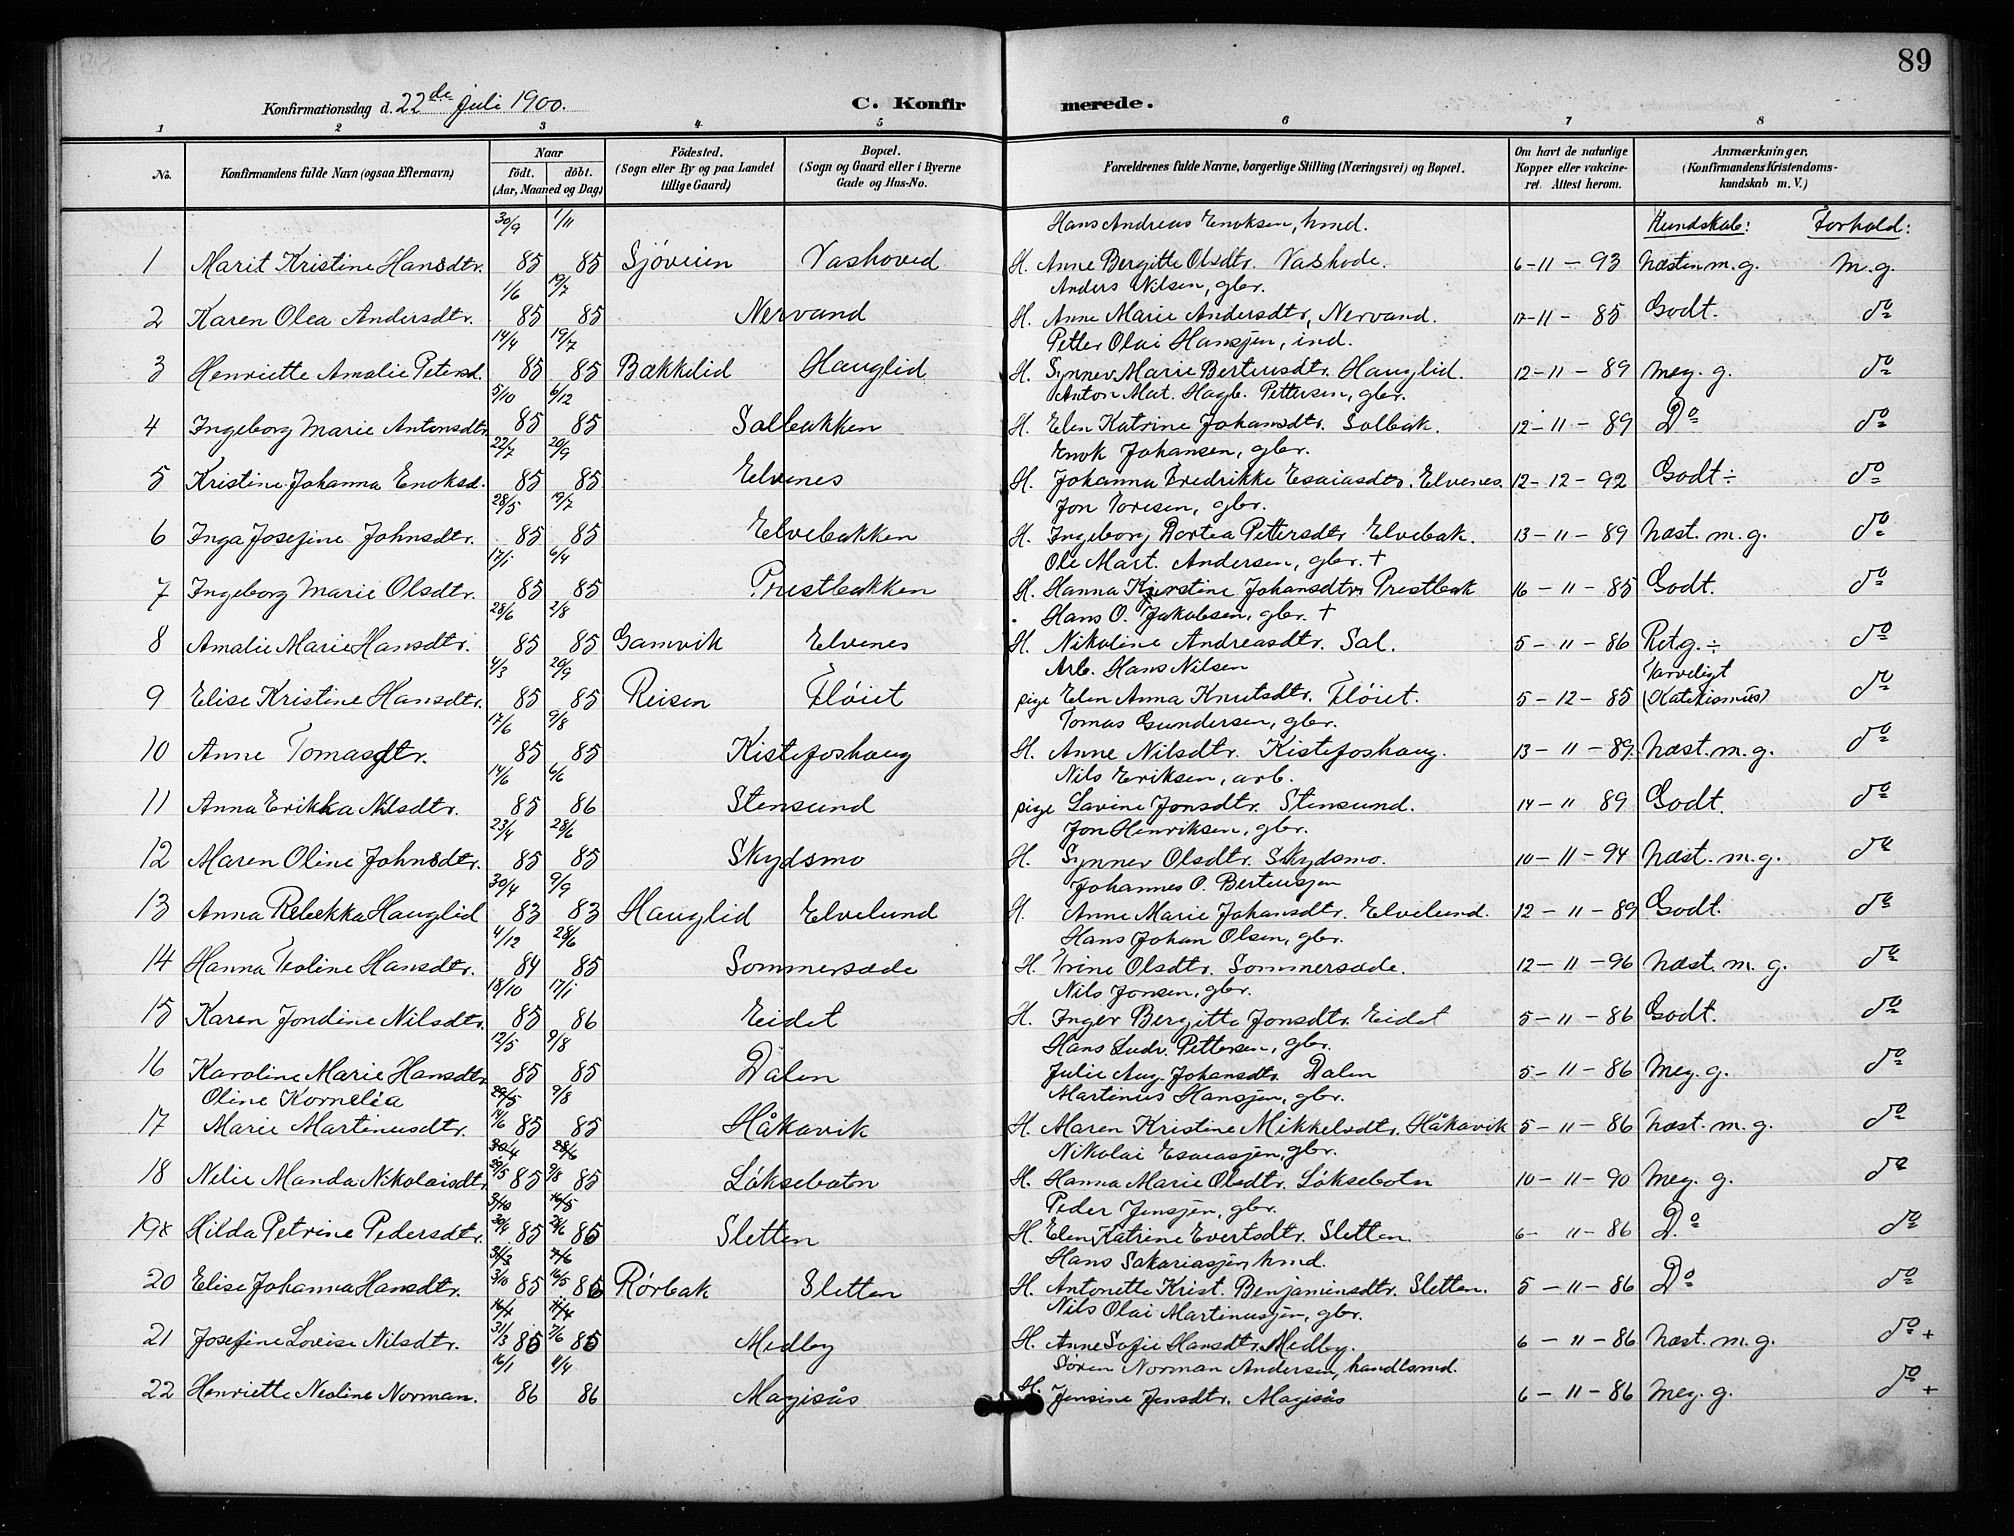 89
Konfirmationsdag d. 22de Juli 1900.
C. Konfirmerede.
1 2 3 4 5 6 7 8
No. Konfirmandens fulde Navn (ogsaa Efternavn) Naar födt. döbt. (Aar, Maaned og Dag) Födested. (Sogn eller By og paa Landet tillige Gaard) Bopæl. (Sogn og Gaard eller i Byerne Gade og Hus-No. Forældrenes fulde Navne, borgerlige Stilling (Næringsvei) og Bopæl. Om havt de naturlige Kopper eller vakcineret. Attest herom. Anmærkninger, (Konfirmandens Kristendomskundskab m. V.)
Kundskab: Forhold:
30/9 1/11 Hans Andreas Enoksen, hmd.
1 Marit Kristine Hansdtr. 85 85 Sjöveien Vashoved H. Anne Bergitte Olsdtr. Vashode. 6-11-93 Næsten m. g. M. g.
1/6 19/7 Anders Nilsen, gbr.
2 Karen Olea Andersdtr. 85 85 Nervand H. Anne Marie Andersdtr, Nervand. 11-11-85 Godt. do
14/4 19/7 Petter Olai Hansjen, ind.
3 Henriette Amalie Petersd. 85 85 Bakkelid Hauglid H. Synnev Marie Berteusdtr. Hauglid. 12-11-89 Meg. g. do
5/10 6/12 Anton Mat. Hagb. Pettersen, gbr.
4 Ingeborg Marie Antonsdtr 85 85 Solbakken H. Elen Katrine Johansdtr. Solbak. 12-11-89 Do do
22/7 20/9 Enok Johansen, gbr.
5 Kristine Johanna Enoksd. 85 85 Elvenes H. Johanna Fredrikke Esaiasdtr. Elvenes. 12-12-92 Godt ÷ do
28/5 19/7 Jon Toresen, gbr.
6 Inga Josefine Johnsdtr. 85 85 Elvebakken H. Ingeborg Dortea Pettersdtr Elvebak. 13-11-89 Næst. m. g. do
17/1 6/4 Ole Mart. Andersen, gbr. +
7 Ingeborg Marie Olsdtr. 85 85 Prestbakken H. Hanna Kjerstine Johansdtr. Prestbak 16-11-85 Godt. do
28/6 2/8 Hans O. Jakobsen, gbr. +
8 Amalie Marie Hansdtr. 85 85 Gamvik Elvenes H. Nikoline Andreasdtr. Sal. 5-11-86 Retg. ÷ do
4/3 20/9 Arb. Hans Nilsen Tarveligt
9 Elise Kristine Hansdtr. 85 85 Reisen Flöiet pige Elen Anna Knutsdtr. Flöiet. 5-12-85 (Katekismus) do
17/6 9/8 Tomas Gundersen, gbr.
10 Anne Tomasdtr. 85 85 Kistefoshaug H. Anne Nilsdtr. Kistefoshaug. 13-11-89 Næst. m. g. do
14/6 6/6 Nils Eriksen, arb.
11 Anna Erikka Nilsdtr. 85 86 Stensund pige Lavine Jonsdtr. Stensund. 14-11 89 Godt. do
23/4 28/6 Jon Henriksen, gbr.
12 Maren Oline Johnsdtr. 85 85 Skydsmo H. Synnev Olsdtr. Skydsmo. 10-11-94 Næst. m. g. do
30/4 9/9 Johannes O. Berteusjen
13 Anna Rebekka Hauglid 83 83 Hauglid Elvelund H. Anne Marie Johansdtr. Elvelund. 12-11-89 Godt. do
4/12 28/6 Hans Johan Olsen, gbr.
14 Hanna Teoline Hansdtr. 84 85 Sommersæde H. Trine Olsdtr. Sommersæde. 12-11-96 Næst. m. g. do
18/10 17/1 Nils Jonsen, gbr.
15 Karen Jondine Nilsdtr. 85 86 Eidet H. Inger Bergitte Jonsdtr. Eidet 5-11-86 Godt. do
12/5 9/8 Hans Ludv. Pettersen, gbr.
16 Karoline Marie Hansdtr 85 85 Dalen Julie Aug. Johansdtr. Dalen 5-11-86 Meg. g. do
Oline Kornelia 29/5 9/8 Martinus Hansjen, gbr.
17 Marie Martinusdtr. 14/6 85 85 Håkavik H. Maren Kristine Mikkelsdtr. Håkavik 5-11-86 Næst. m. g. do
30/4 28/6 Nikolai Esaiasjen, gbr.
18 Nelie Manda Nikolaisdtr 29/5 85 9/8 85 Löksebotn H. Hanna Marie Olsdtr. Löksebotn 10-11-90 Meg. g. do
3/10 16/5 Peder Jensjen, gbr.
19x Hilda Petrine Pedersdtr. 30/4 85 28/6 85 Sletten H. Elen Katrine Evertsdtr. Sletten. 6- 11-86 Do do
31/3 7/6 Hans Sakariasjen, hmd.
20 Elise Johanna Hansdtr. 3/10 85 16/5 86 Rörbak Sletten H. Antonette Krist. Benjaminsdtr. Sletten. 5-11-86 Do do
16/1 11/4 Nils Olai Martinusjen, gbr.
21 Josefine Lovise Nilsdtr. 31/3 85 7/6 85 Medby H. Anne Sofie Hansdtr. Medby. 6-11-86 Næst. m. g. do +
16/1 11/4 Sören Norman Andersen, handlsmd.
22 Henriette Neoline Norman. 86 86 Mogisås H. Jensine Jensdtr. Mogisås 6-11-86 Meg. g. do +